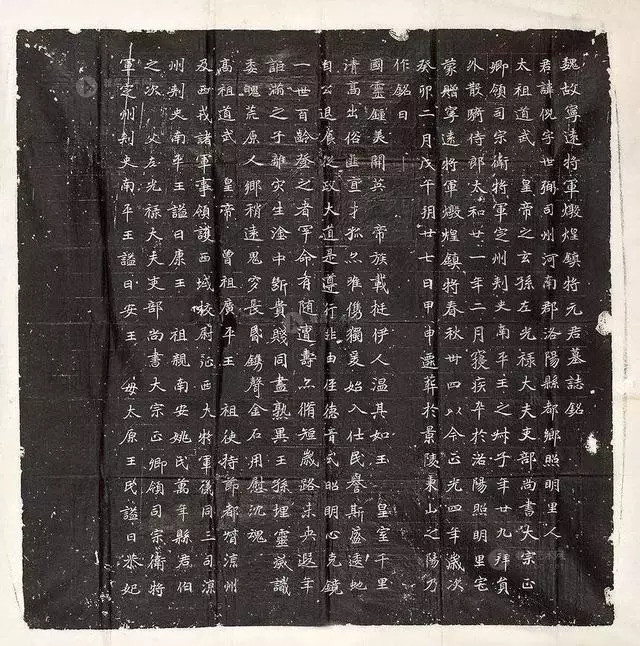 魏故寧遠將軍燉煌鎮將元君墓誌銘
君諱倪字世弼司州河南郡洛陽縣都鄉照明里人
太祖道武 皇帝之玄孫左光祿大夫吏部尚書大宗正
卿領司宗衛將軍定州刺史南平王之叔子年廿九拜員
外散騎侍郎太和廿一年二月寢疾卒於洛陽照明里宅
蒙贈寧遠將軍燉煌鎮將春秋卅四以今正光四年歲次
癸卯二月戊午朔廿七日甲申遷葬於景陵東山之陽乃
作銘曰
國靈鍾美開英 帝族載挺伊人温其如玉 皇室千里
清高出俗匪宜才孤亦唯儁獨爰始入仕民譽斯盛逺
自公退食從政大道是遵行非由徑德音式昭明心克鏡
一世百齡發之者罕命有隨遭壽亦脩短路未央遐年
詎滿之子離灾生塗中斷貴賤同盡孰異王孫埋靈識
委魄荒原人鄉稍逺鬼穸長昏鐫聲金石用慰沉魂
高祖道武 皇帝 曾祖廣平王 祖使持節都督涼州
及西戎諸軍事領護西域校尉征西大將軍儀同三司涼
州刺史南平王謚曰康王 祖親南安姚氏萬年縣君伯
之次 父左光祿大夫吏部尚書大宗正卿領司宗衛將
軍定州刺史南平王謚曰安王 母太原王氏謚曰恭妃